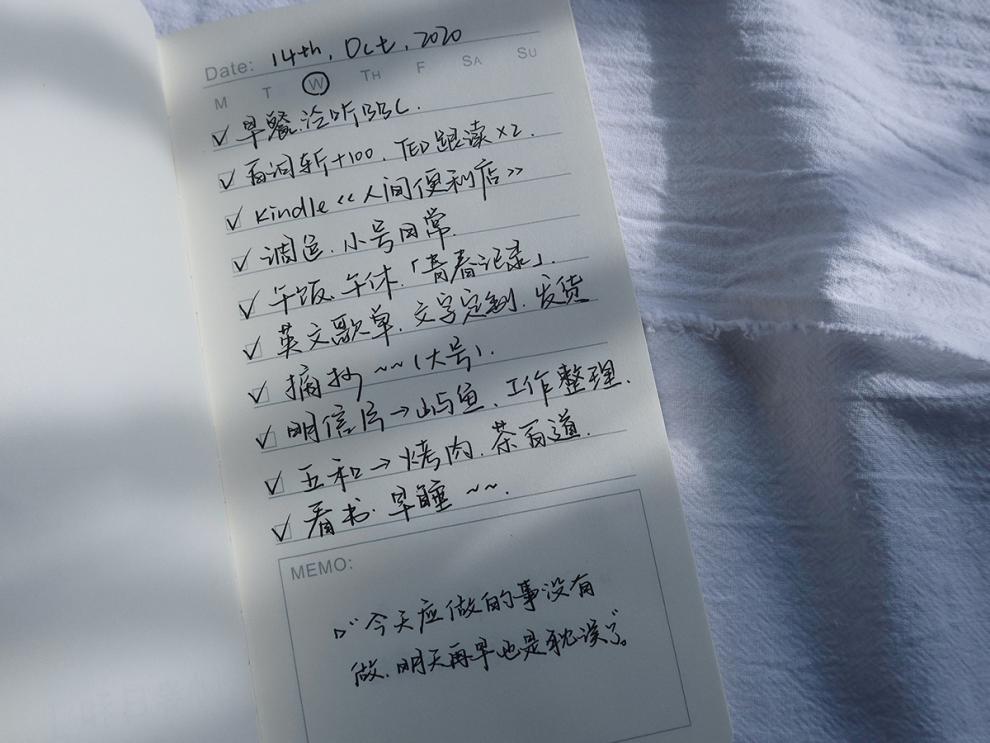 Date: 14th, Oct, 2020
M T W TH F SA SU
早餐.泛听BBC.
百词斩+100. TED跟读×2.
Kindle《人间便利店》
调色.小号日常
午饭.午休.「青春记录」.
英文歌单.文字定制.发货
摘抄~~(大号).
明信片→屿鱼.工作整理.
五和→烤肉.茶百道.
看书.早睡~~.
MEMO:
“今天应做的事没有
做.明天再早也是耽误了”